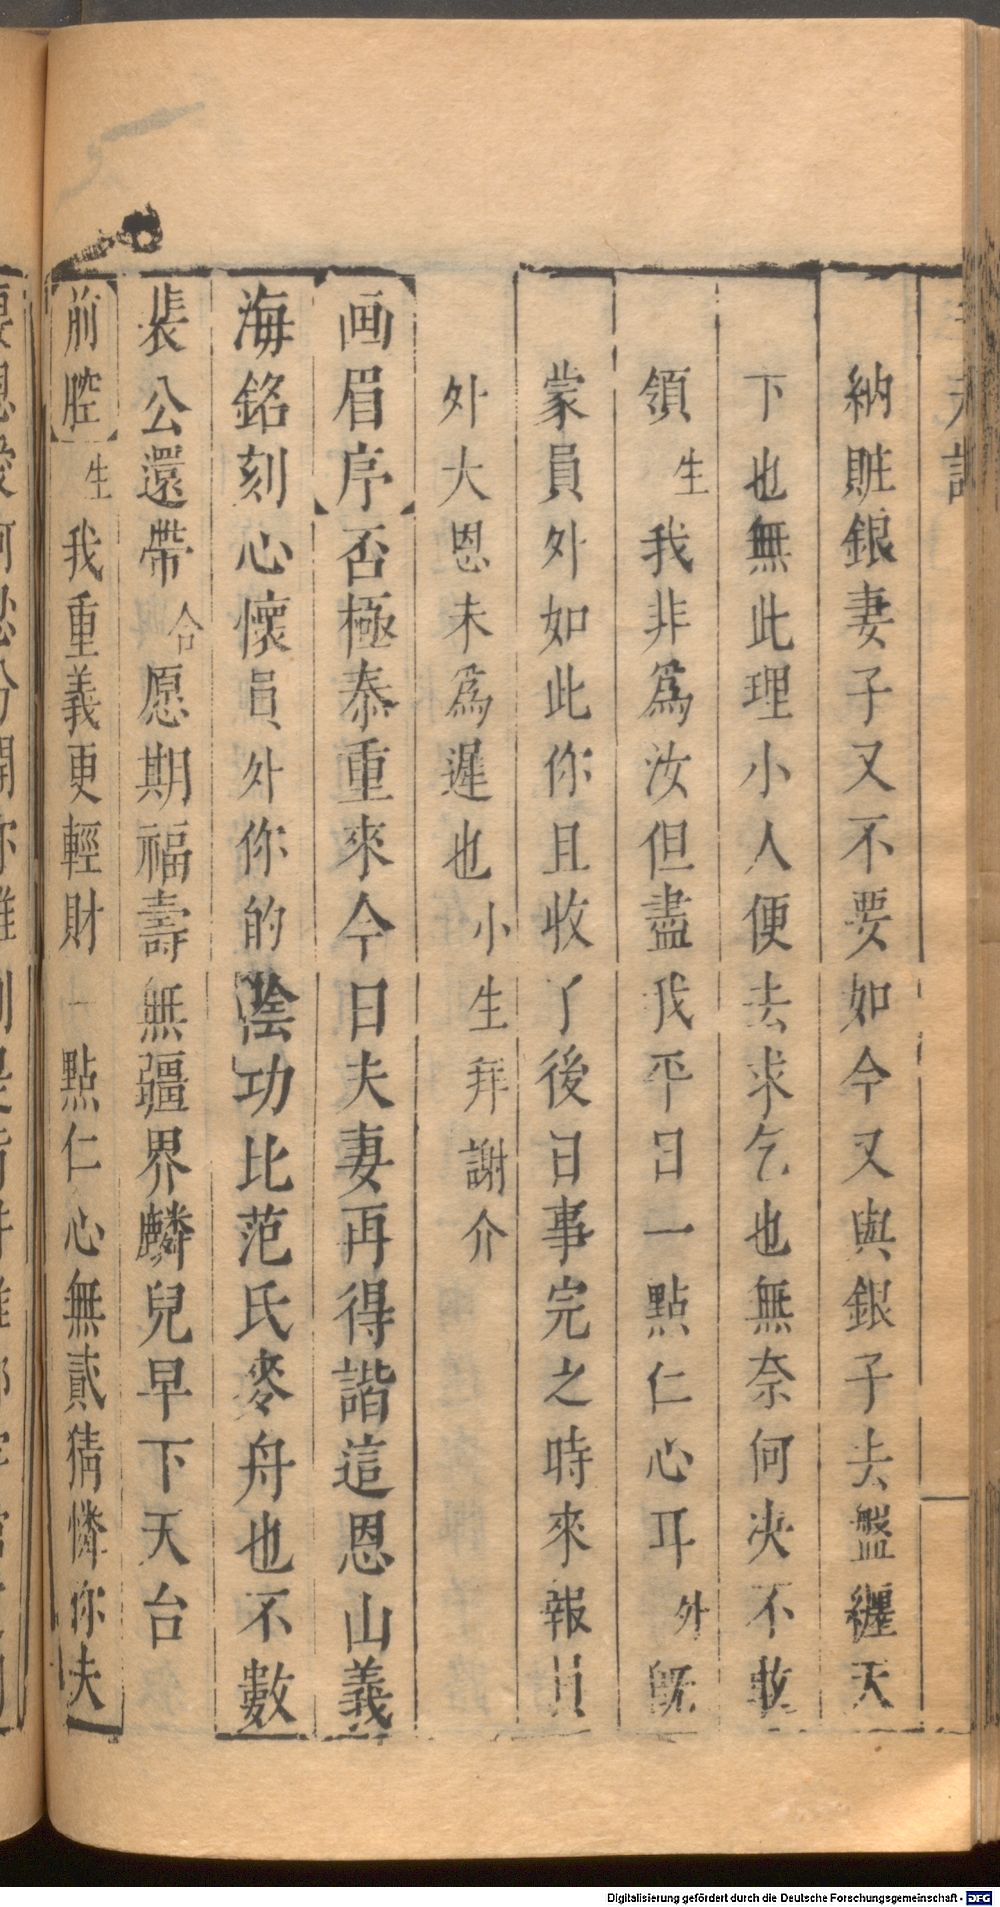 三元記
納賍銀妻子又不要如今又與銀子去盤纏天
下也無此理小人便去求乞也無奈何决不敢
領生我非爲汝但盡我平日一點仁心耳外既
蒙員外如此你且收了後日事完之時來報員
外大恩未爲遲也小生拜謝介
画眉序否極泰重來今日夫妻再得諧這恩山義
海銘刻心懷員外你的陰功比范氏麥舟也不數
裴公還帶合愿期福壽無疆界麟兒早下天台
前腔生我重義更輕財一點仁心無貳猜憐你夫
Digitalisierung gefördert durch die Deutsche Forschungsgemeinschaft - DFG